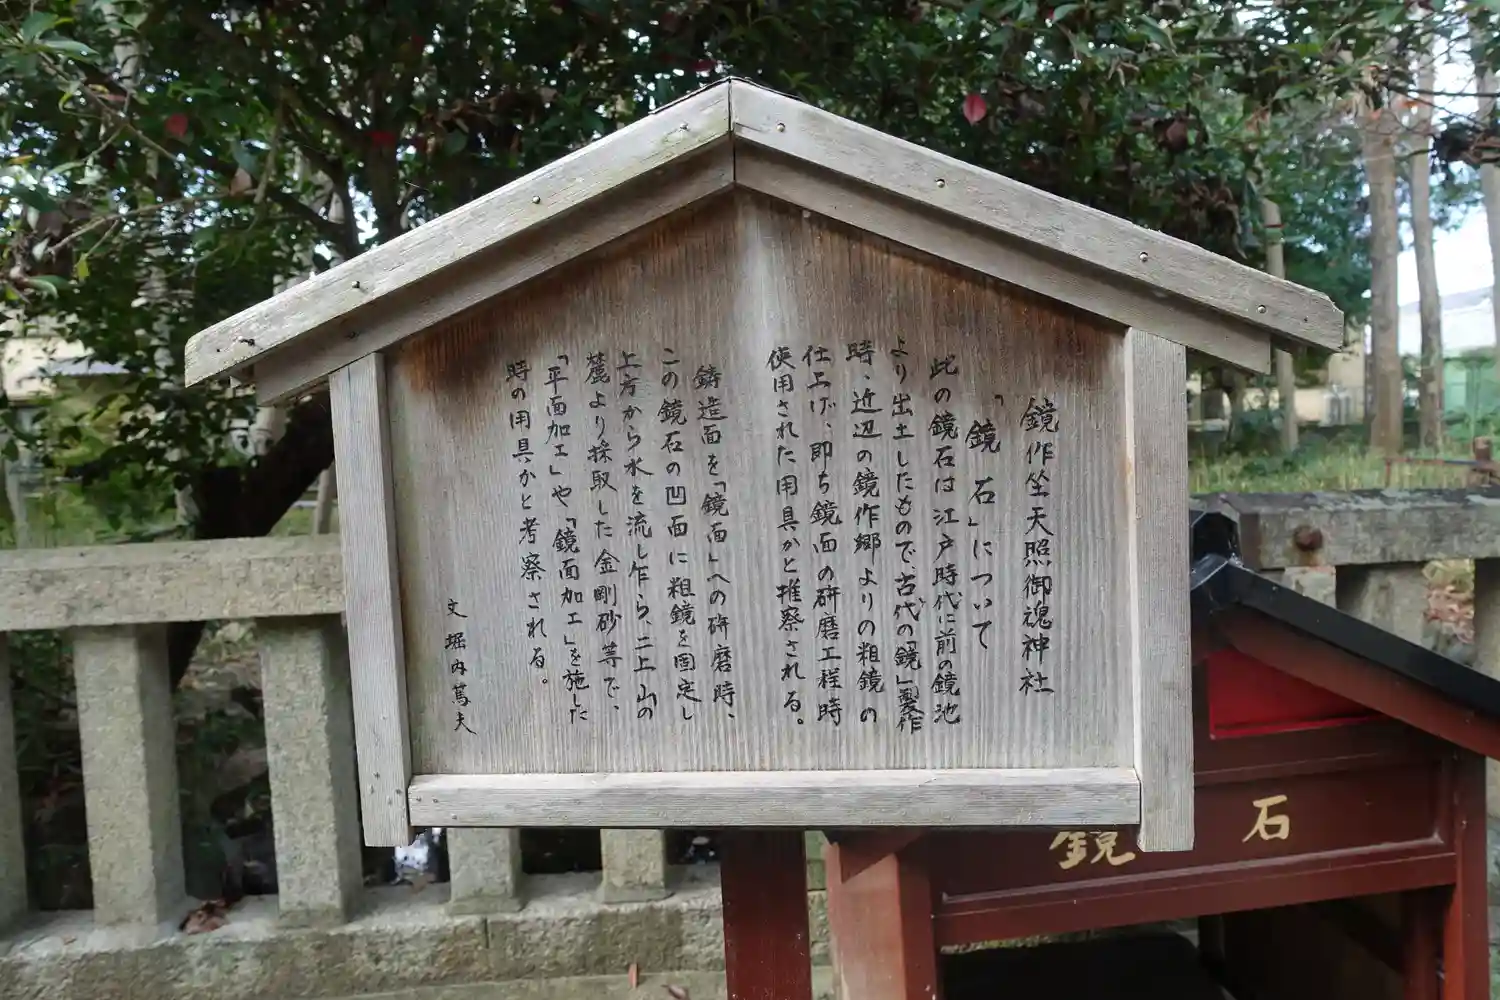 鏡作坐天照御魂神社
「鏡 石」について
此の鏡石は江戸時代に前の鏡池
より出土したもので、古代の「鏡」製作
時、近辺の鏡作郷よりの粗鏡の
仕上げ、即ち鏡面の研磨工程時
使用された用具かと推察される。
鋳造面を「鏡面」への研磨時、
この鏡石の凹面に粗鏡を固定し
上方から水を流し乍ら、二上山の
麓より採取した金剛砂等で、
「平面加工」や「鏡面加工」を施した
時の用具かと考察される。
文 堀内萬夫
鏡 石